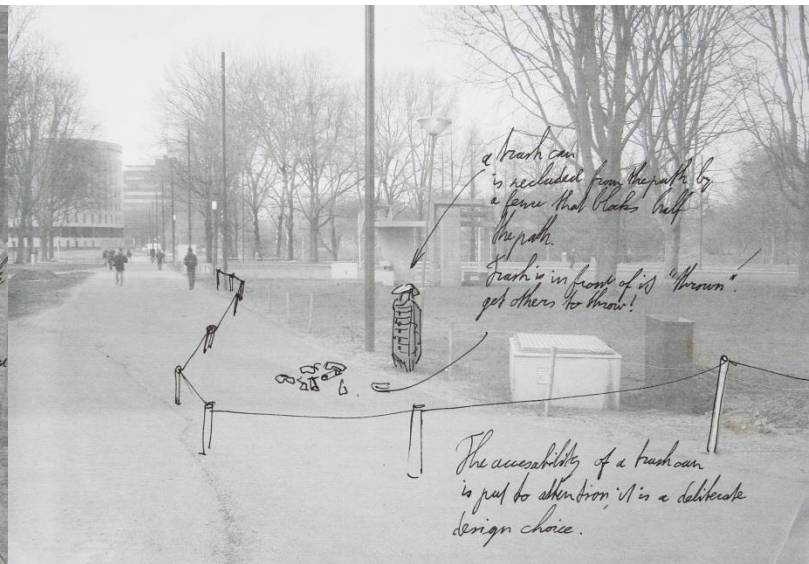 a trash can
is secluded from the path by
a fence that blocks half
the path.
Trash is in front of it "thrown".
get others to throw!
The accesability of a trash can
is put to attention, it is a deliberate
design choice.